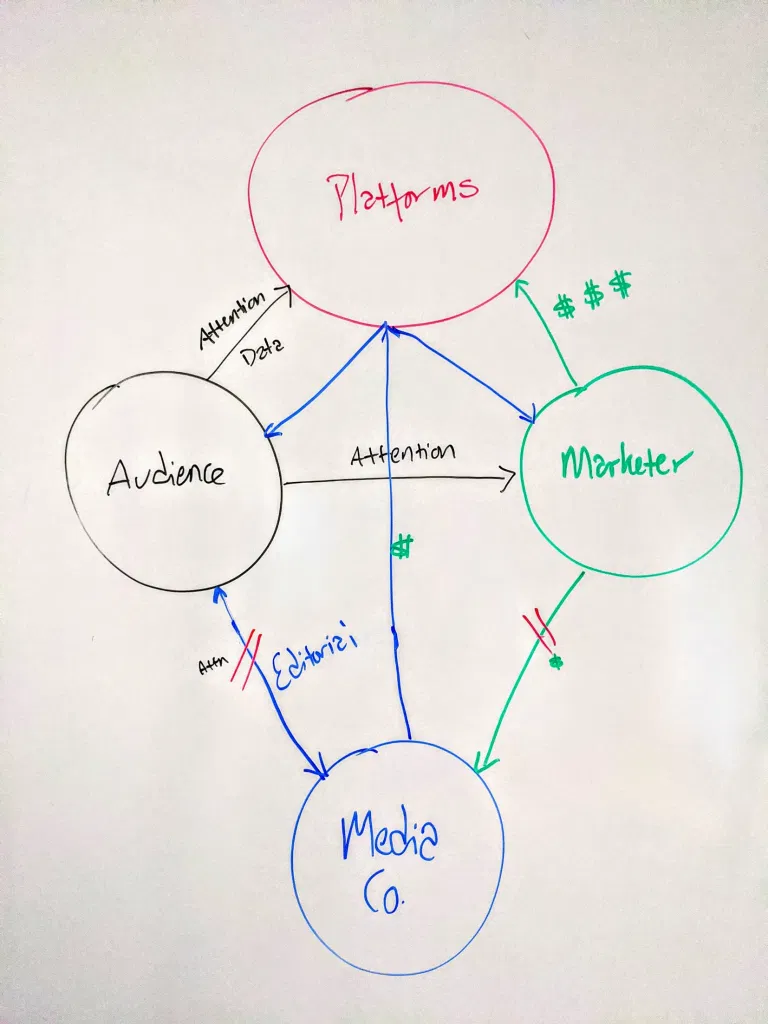 Platforms
$ $ $
Attention
Data
Audience
Attention
Marketer
$
Attn
Editorial
$
Media
Co.